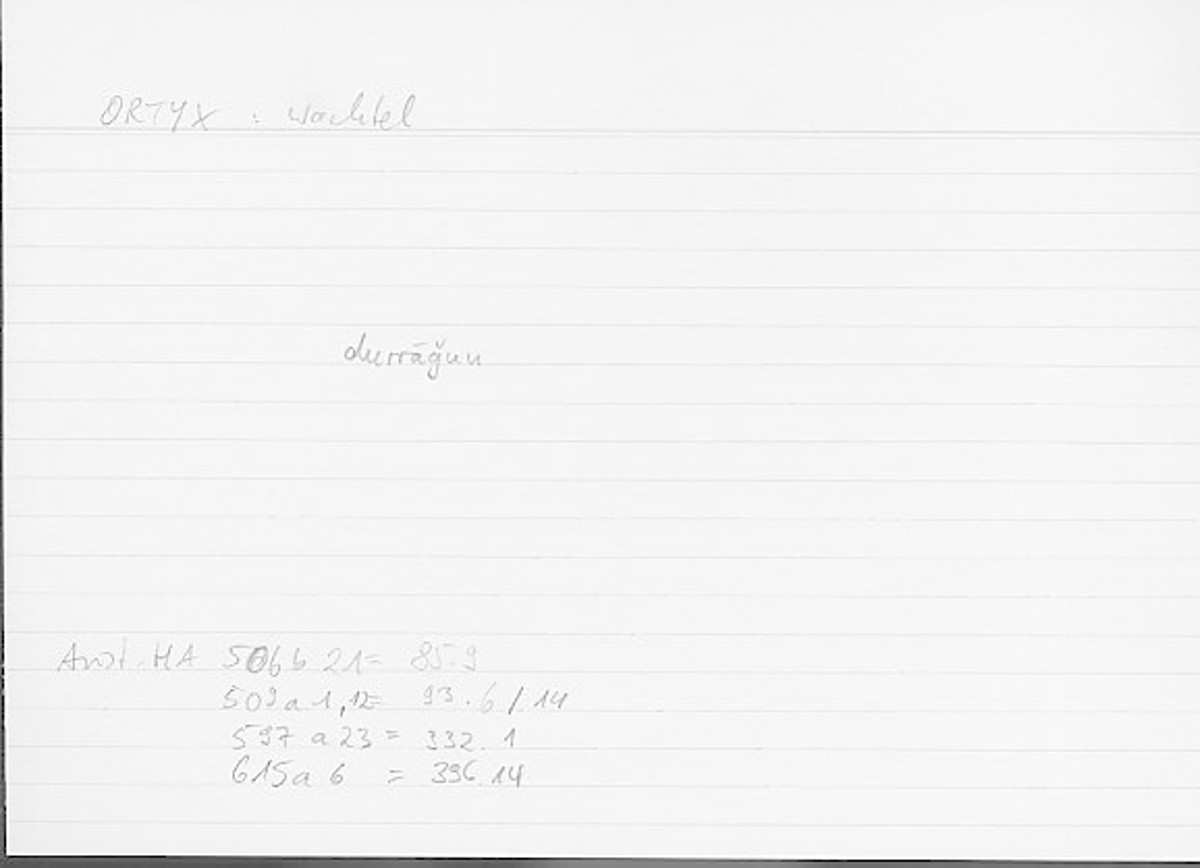 ORTYX : Wachtel
durrāǧun
Arist. HA 506b 21 = 85.9
509a 1,12 = 93.6/14
597a23 = 332.1
615a 6 = 396.14